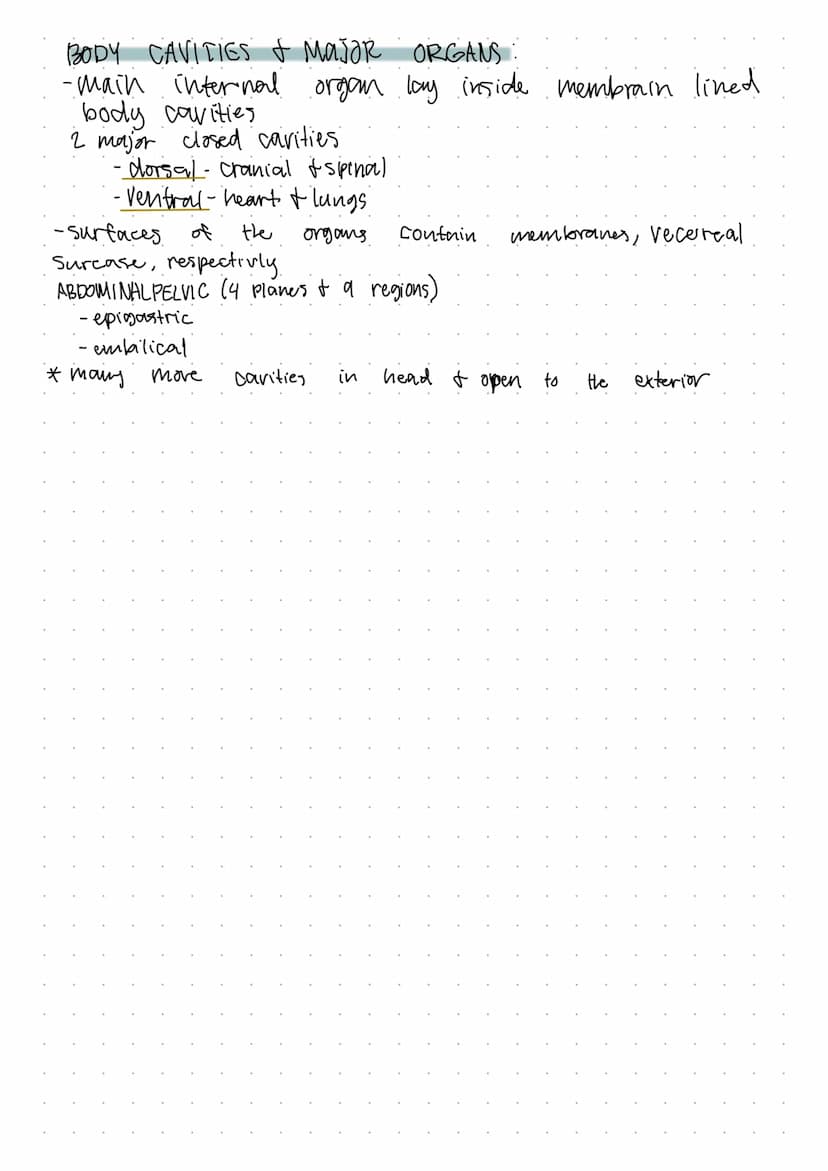 BODY CAVITIES & MAJOR ORGANS:
-main internal organ lay inside membrain lined
body cavities
2 major closed cavities
- dorsal - cranial & spinal
- ventral - heart & lungs
-surfaces of the organs contain membranes, vecereal
surcase, respectivly
ABDOMINALPELVIC (4 planes & 9 regions)
- epigastric
- embilical
* many more cavities in head & open to the exterior